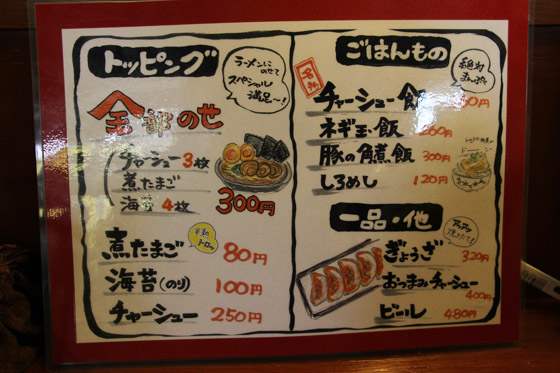 トッピング
ラーメンに
のせて
スペシャル
満足〜!
全部のせ
チャーシュー3枚
煮たまご
海苔 4枚
300円
煮たまご 80円
半熟
トロッ
海苔(のり) 100円
チャーシュー 250円
ごはんもの
名物
チャーシュー飯
ネギ玉飯
豚の角煮飯 300円
しろめし 120円
一品・他
アツアツ
焼きたて!
ぎょうざ 320円
おつまみチャーシュー
400円
ビール 480円